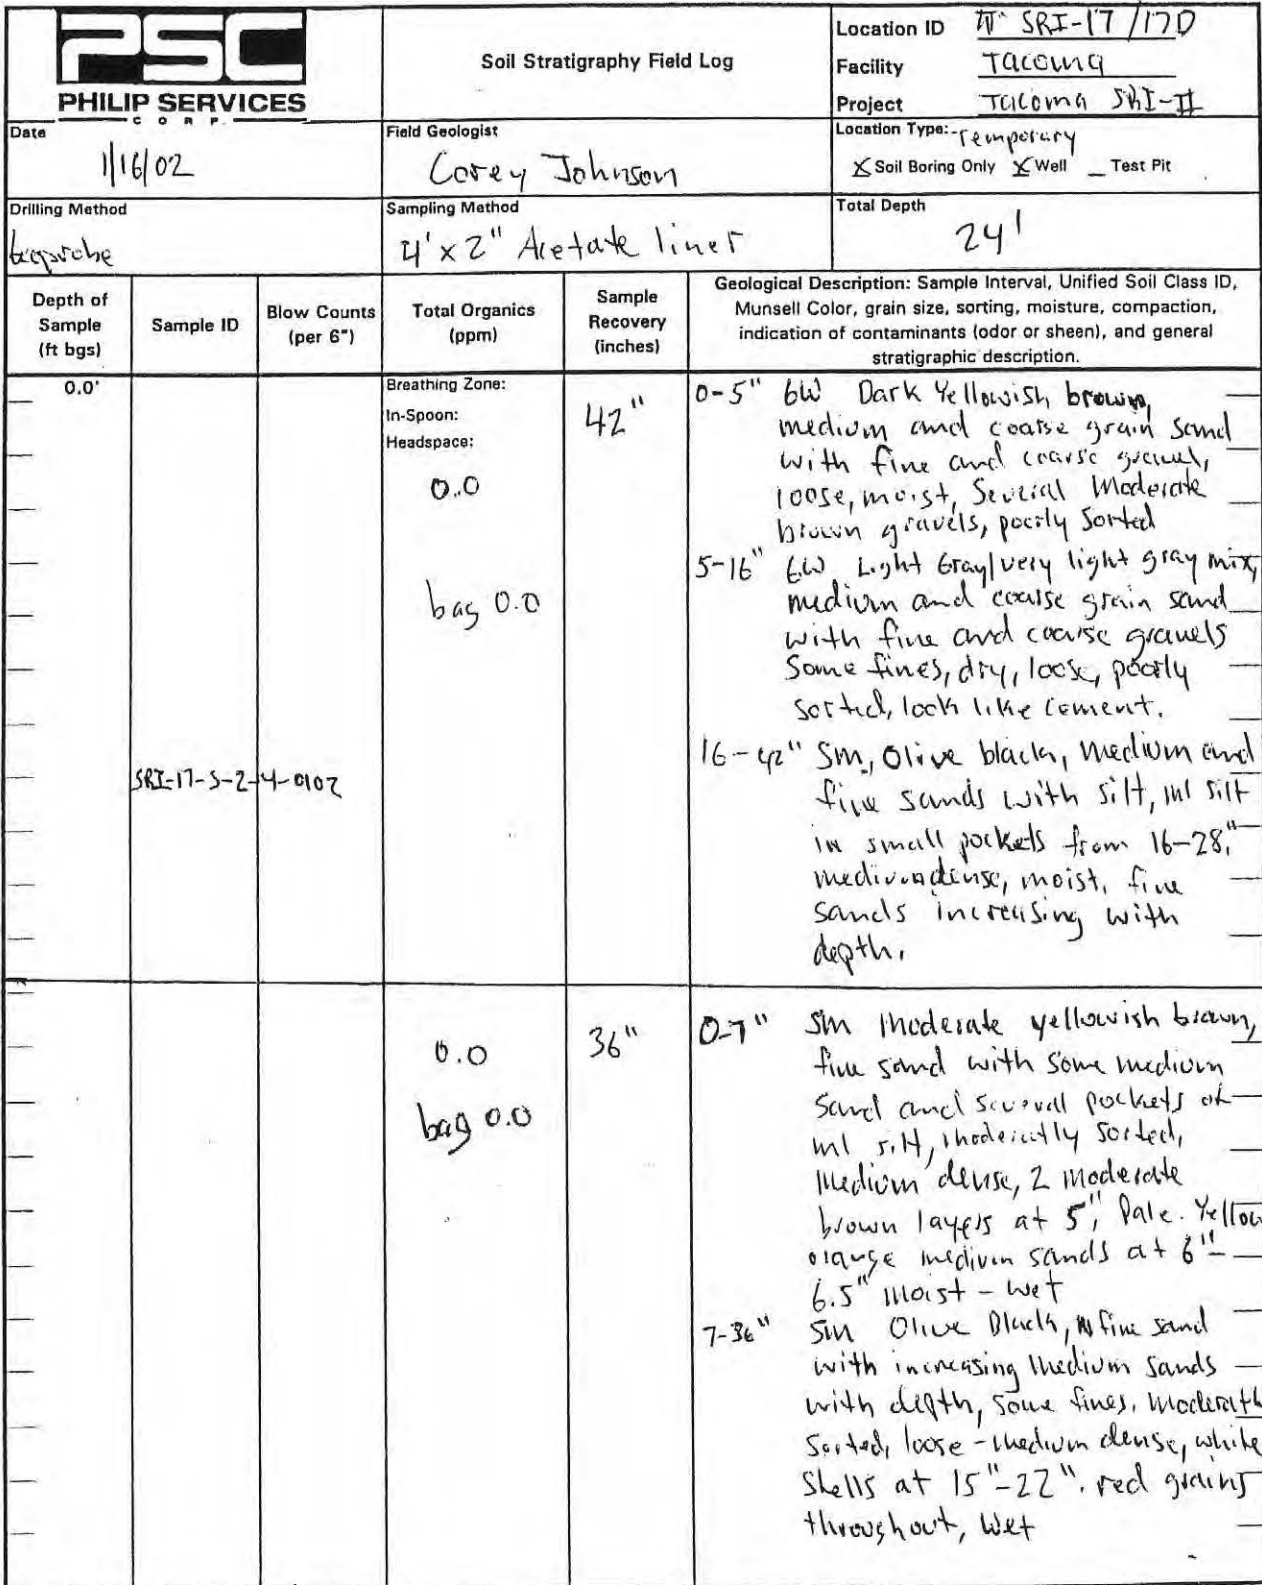 PSC
PHILIP SERVICES
CORP.
Soil Stratigraphy Field Log
Location ID SRI-17/17D
Facility Tacoma
Project Tacoma SRI-II
Date
1/16/02
Field Geologist
Corey Johnson
Location Type:-Temporary
X Soil Boring Only X Well _ Test Pit
Drilling Method
Geoprobe
Sampling Method
4'x2" Acetate liner
Total Depth
24'
Depth of
Sample
(ft bgs)
Sample ID
Blow Counts
(per 6")
Total Organics
(ppm)
Sample
Recovery
(inches)
Geological Description: Sample Interval, Unified Soil Class ID,
Munsell Color, grain size, sorting, moisture, compaction,
indication of contaminants (odor or sheen), and general
stratigraphic description.
0.0'
Breathing Zone:
In-Spoon:
Headspace:
0.0
bag 0.0
42"
SRI-17-S-2-4-0102
0-5" GW Dark Yellowish brown,
medium and coarse grain sand
with fine and coarse gravel,
loose, moist, Several Moderate
brown gravels, poorly Sorted
5-16" GW Light Gray/very light gray mix,
medium and coarse grain sand
with fine and coarse gravels
Some fines, dry, loose, poorly
sorted, look like cement.
16-42" SM, Olive black, medium and
fine sands with silt, ml silt
in small pockets from 16-28",
medium dense, moist, fine
sands increasing with
depth.
0.0
bag 0.0
36"
0-7" SM Moderate yellowish brown,
fine sand with some medium
sand and several pockets of
ml silt, moderately sorted,
medium dense, 2 moderate
brown layers at 5", Pale. Yellow
orange medium sands at 6"-
6.5" moist - wet
7-36" SM Olive Black, fine sand
with increasing medium sands
with depth, some fines, moderath
Sorted, loose-medium dense, white
Shells at 15"-22". red grains
throughout, wet